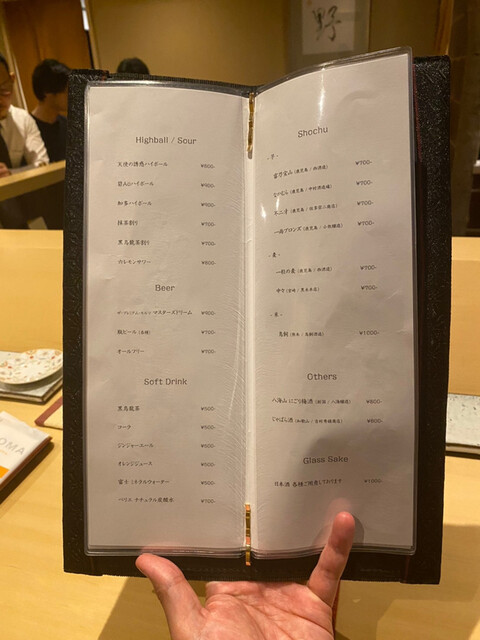 野
OMA
Highball / Sour
天使の誘惑ハイボール ¥800-
碧Axハイボール ¥900-
知多ハイボール ¥900-
抹茶割り ¥700-
黒烏龍茶割り ¥700-
六レモンサワー ¥800-
Beer
ザ・プレミアム・モルツ マスターズドリーム ¥900-
瓶ビール ¥700-
オールフリー ¥700-
Soft Drink
黒烏龍茶 ¥500-
コーラ ¥500-
ジンジャーエール ¥500-
オレンジジュース ¥500-
富士 ミネラルウォーター ¥500-
ペリエ ナチュラル炭酸水 ¥700-
Shochu
- 芋 -
富乃宝山 (鹿児島 / 西酒造) ¥700-
なかむら (鹿児島 / 中村酒造場) ¥700-
不二才 (鹿児島 / 佐多宗二商店) ¥700-
一尚ブロンズ (鹿児島 / 小牧醸造) ¥700-
- 麦 -
一粒の麦 (鹿児島 / 西酒造) ¥700-
中々 (宮崎 / 黒木本店) ¥700-
- 米 -
鳥飼 (熊本 / 鳥飼酒造) ¥1000-
Others
八海山 にごり梅酒 (新潟 / 八海醸造) ¥800-
じゃばら酒 (和歌山 / 吉村秀雄商店) ¥800-
Glass Sake
日本酒 各種ご用意しております ¥1000-